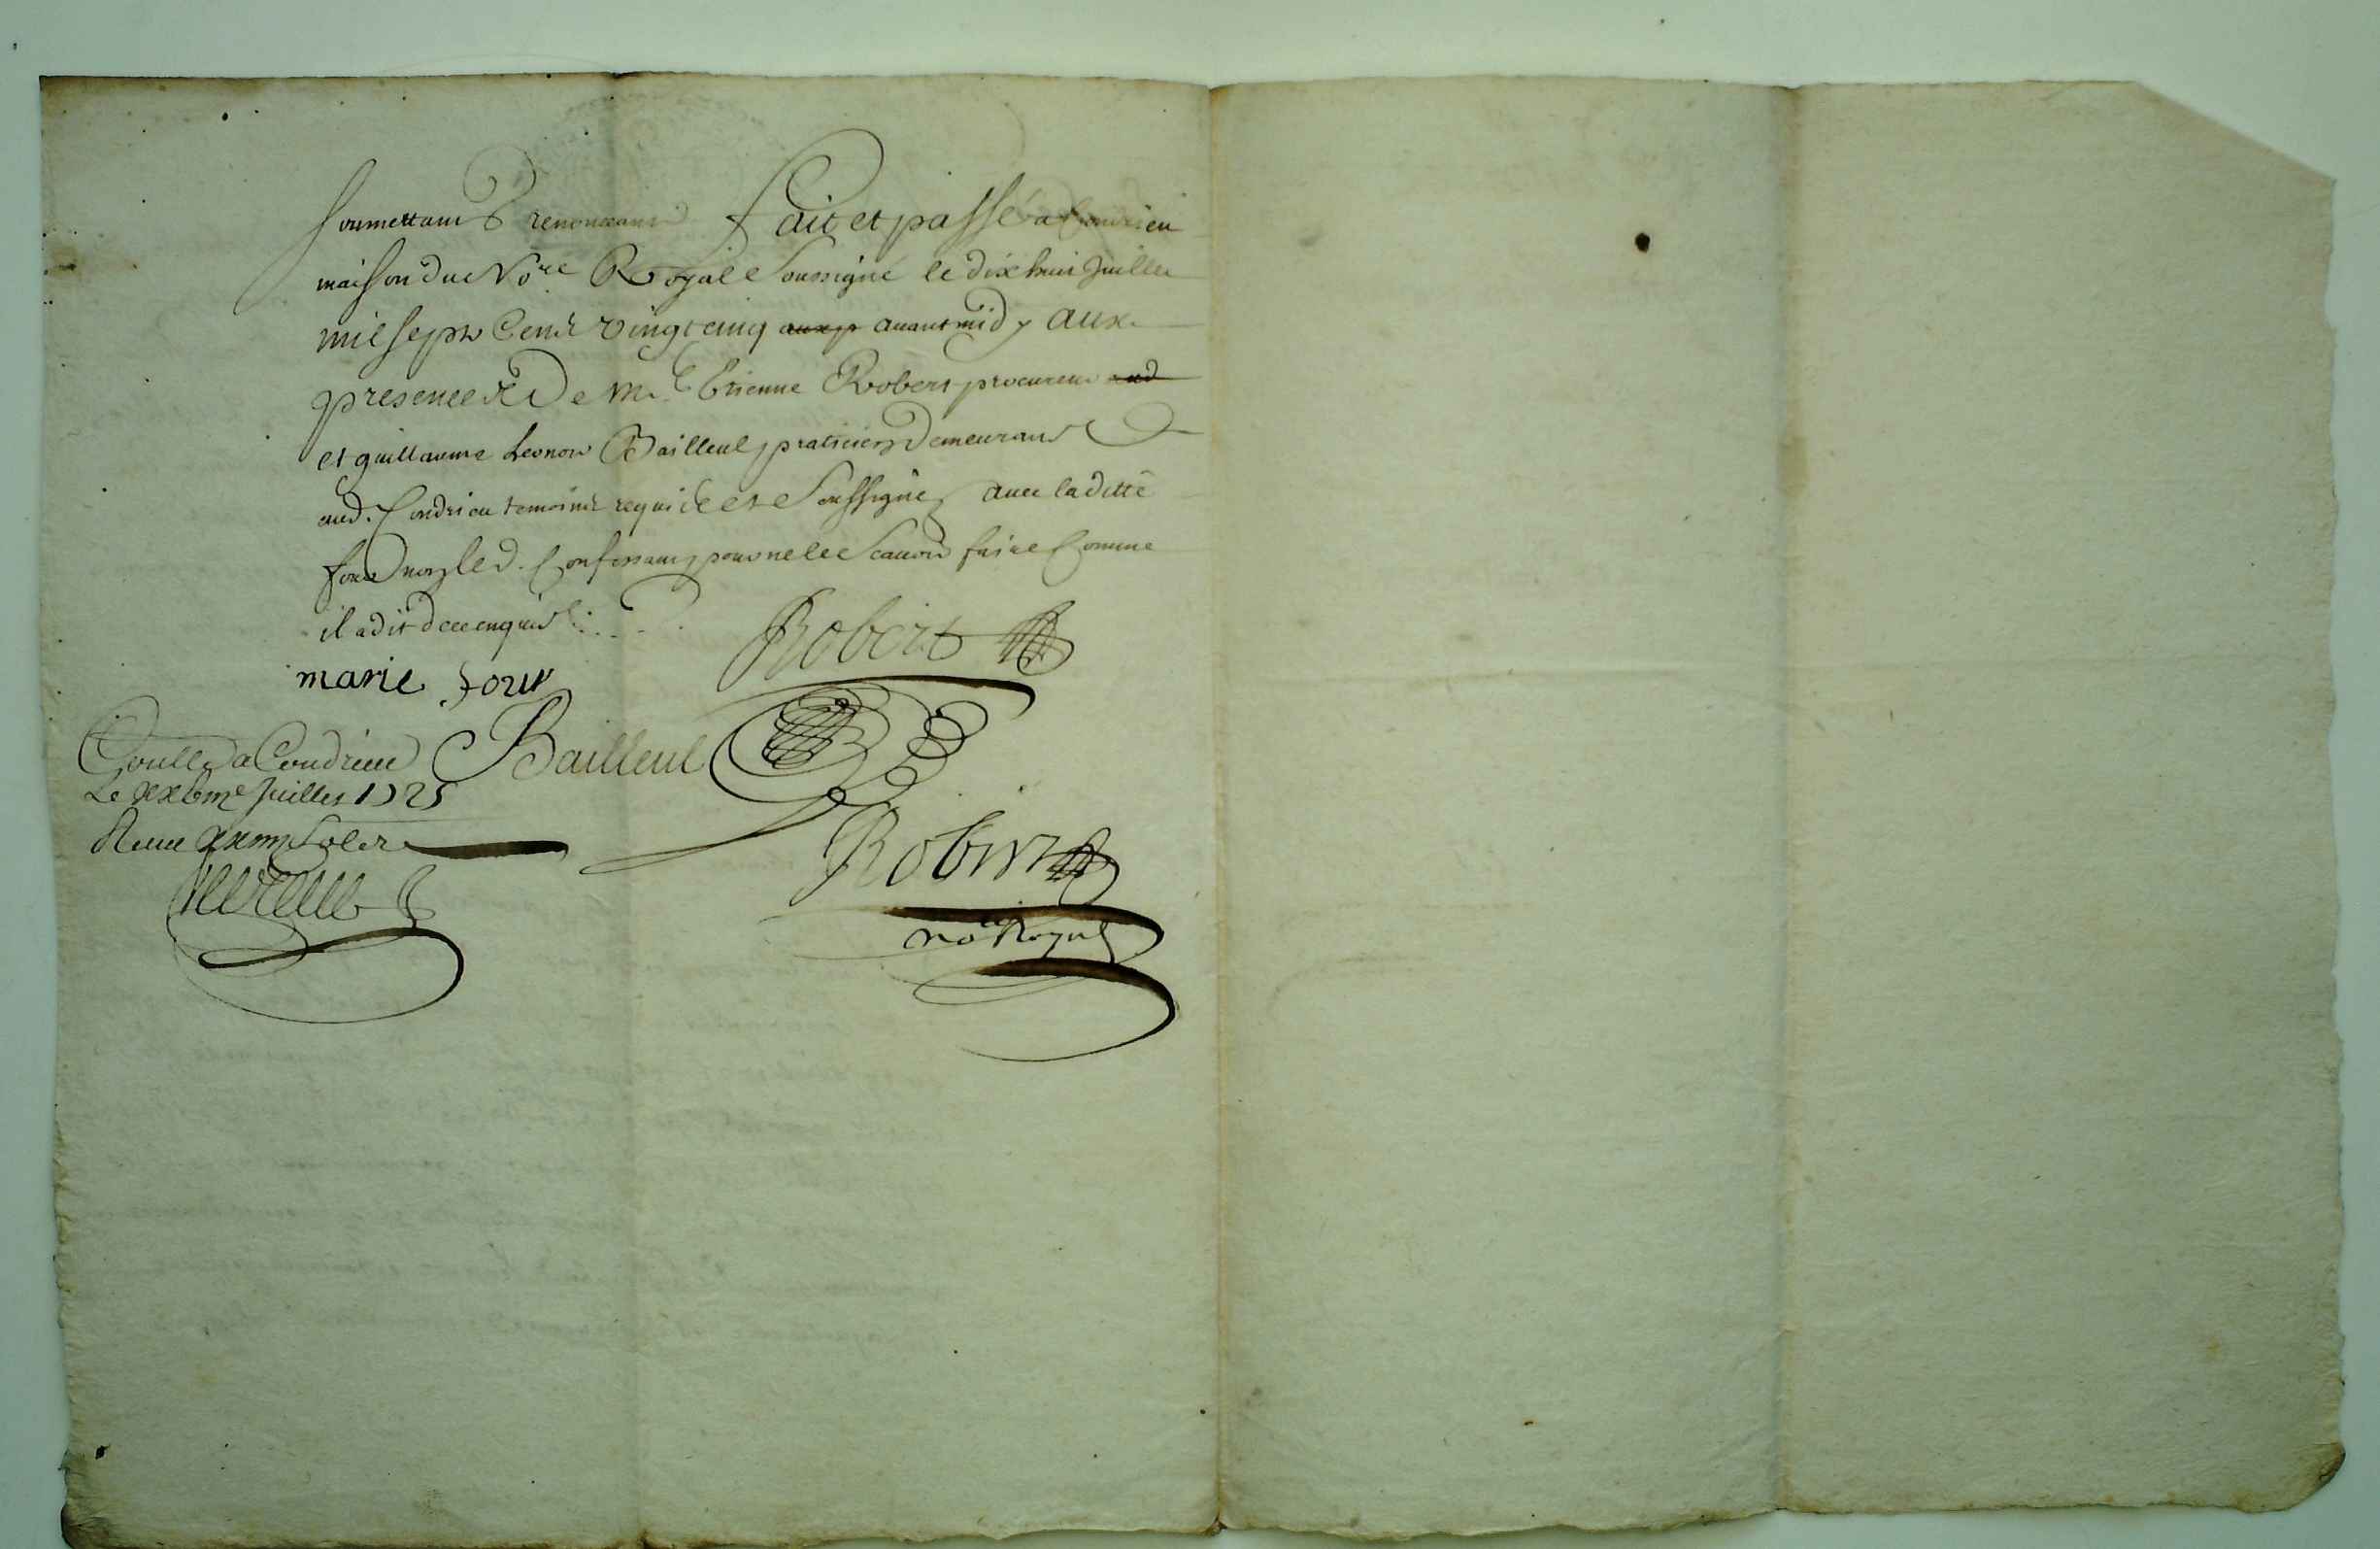 soumettans & renonceans fait et passé a Condrieu
maison du No.re Royal soussigné le dix huit Juillet
mil sept Cent vingt cinq auxp avant midy aux
presences De me Etienne Robert procureur aud
et guillaume Leonor Bailleul praticien Demeurans
aud. Condrieu temoins requis et soussignes avec laditte
four non led. Confessant pour ne le scavoir faire Comme
il a dit de ce enquis
marie four
Robert
Bailleul
Conlle a Condrieu
Le xxbme Juillet 1725
Receu sols
Robin
no.re Royal